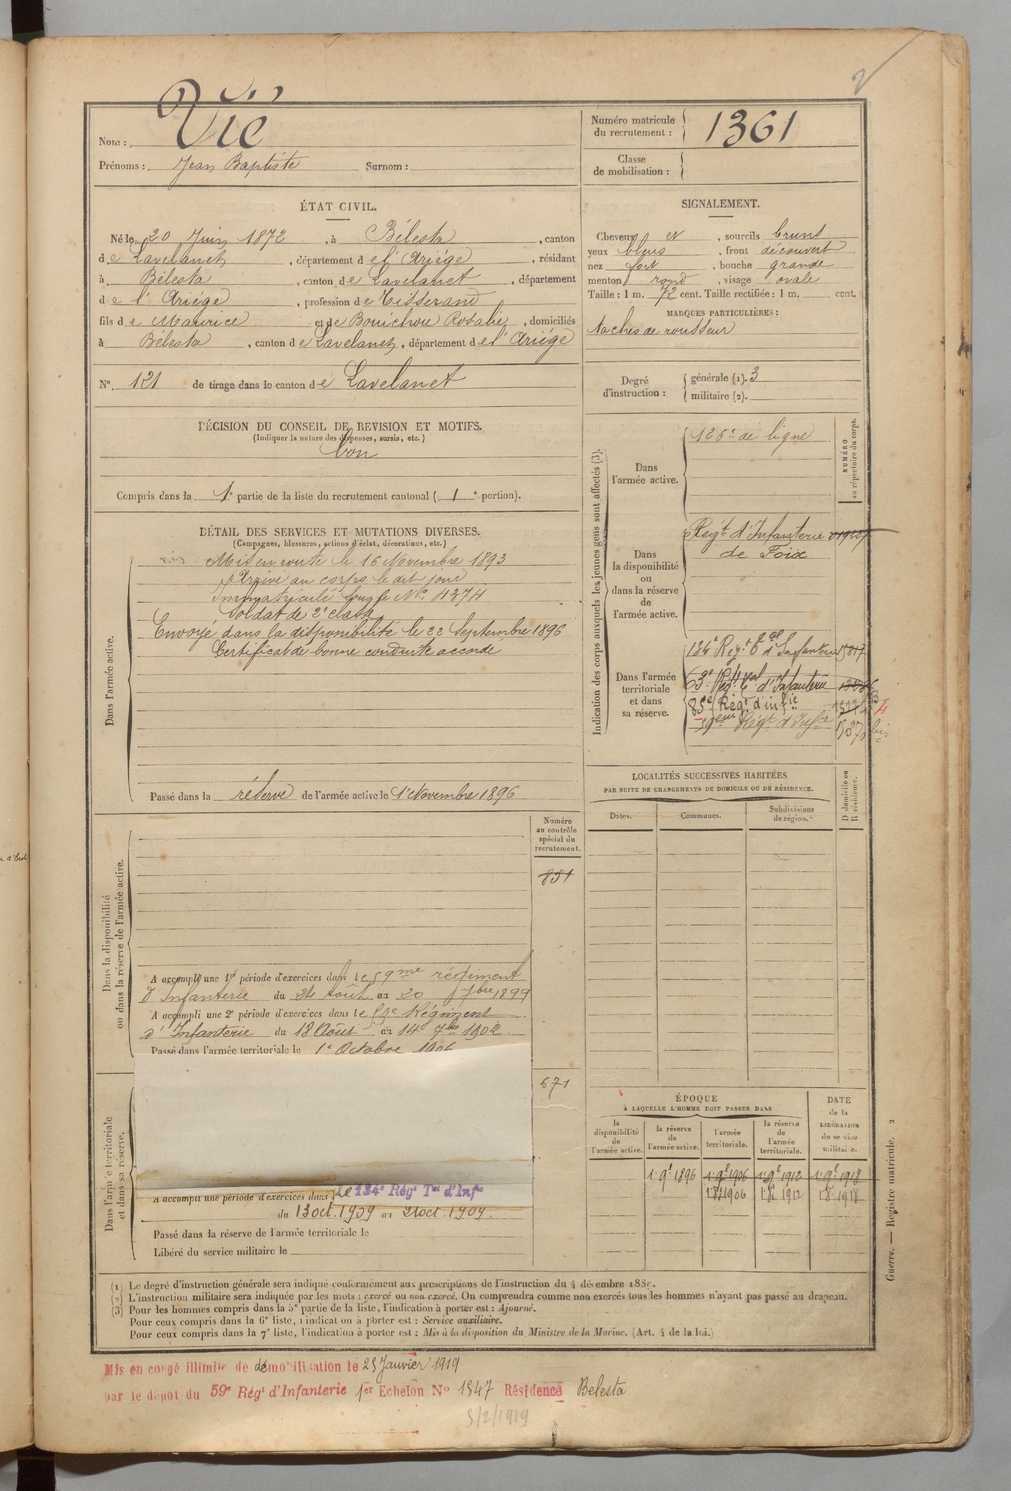 2
Nom : Vié
Prénoms : Jean Baptiste Surnom :
Numéro matricule du recrutement : 1361
Classe de mobilisation :
ÉTAT CIVIL.
Né le 20 Juin 1872, à Bélesta, canton
de Lavelanet, département de l'Ariége, résidant
à Bélesta, canton de Lavelanet, département
de l'Ariége, profession de Tisserand
fils de Maurice et de Bouichou Rosalie, domiciliés
à Bélesta, canton de Lavelanet, département de l'Ariége
N° 121 de tirage dans le canton de Lavelanet
SIGNALEMENT.
Cheveux et, sourcils bruns
yeux bleus, front découvert
nez fort, bouche grande
menton rond, visage ovale
Taille : 1 m. 72 cent. Taille rectifiée : 1 m. cent.
MARQUES PARTICULIÈRES :
taches de rousseur
Degré d'instruction : générale (1). 3
militaire (2).
DÉCISION DU CONSEIL DE REVISION ET MOTIFS.
(Indiquer la nature des dispenses, sursis, etc.)
bon
Compris dans la 1e partie de la liste du recrutement cantonal (1e portion).
DÉTAIL DES SERVICES ET MUTATIONS DIVERSES.
(Campagnes, blessures, actions d'éclat, décorations, etc.)
Dans l'armée active.
Mis en route le 16 Novembre 1893
Arrivé au corps le dit jour
Immatriculé sous le N° 4374
Soldat de 2e classe
Envoyé dans la disponibilité le 22 Septembre 1896
Certificat de bonne conduite accordé
Passé dans la réserve de l'armée active le 1e Novembre 1896
Indication des corps auxquels les jeunes gens sont affectés (3).
NUMÉRO au répertoire du corps.
Dans l'armée active.
126e de ligne
Dans la disponibilité ou dans la réserve de l'armée active.
Regt d'Infanterie
de Foix
Dans l'armée territoriale et dans sa réserve.
134e Regt tal d'Infanterie
63e Regt tal d'Infanterie
83e Régt d'infie
59eme Régt d'Infie
LOCALITÉS SUCCESSIVES HABITÉES
PAR SUITE DE CHANGEMENTS DE DOMICILE OU DE RÉSIDENCE.
Dates. Communes. Subdivisions de région. D domicile ou R résidence.
Dans la disponibilité ou dans la réserve de l'armée active.
Numéro au contrôle spécial du recrutement.
851
A accompli une 1re période d'exercices dans le 59me régiment
d'Infanterie du 24 Août au 20 7bre 1899
A accompli une 2e période d'exercices dans le 59e Régiment
d'Infanterie du 18 Août au 14 7bre 1902
Passé dans l'armée territoriale le 1e Octobre 1906
671
Dans l'armée territoriale et dans sa réserve.
A accompli une période d'exercices dans le 134e Régt Tal d'Infie
du 13 oct. 1909 au 21 oct. 1909.
Passé dans la réserve de l'armée territoriale le
Libéré du service militaire le
ÉPOQUE
À LAQUELLE L'HOMME DOIT PASSER DANS
la disponibilité de l'armée active. la réserve de l'armée active. l'armée territoriale. la réserve de l'armée territoriale. DATE de la LIBÉRATION du service militaire.
1 9e 1896 1 9e 1906 1 9e 1912 1 9e 1918
1 8e 1906 1 8e 1912 1 8e 1918
Guerre. — Registre matricule. 2
(1) Le degré d'instruction générale sera indiqué conformément aux prescriptions de l'instruction du 4 décembre 1889.
(2) L'instruction militaire sera indiquée par les mots : exercé ou non exercé. On comprendra comme non exercés tous les hommes n'ayant pas passé au drapeau.
(3) Pour les hommes compris dans la 5e partie de la liste, l'indication à porter est : Ajourné.
Pour ceux compris dans la 6e liste, l'indication à porter est : Service auxiliaire.
Pour ceux compris dans la 7e liste, l'indication à porter est : Mis à la disposition du Ministre de la Marine. (Art. 4 de la loi.)
Mis en congé illimité de démobilisation le 25 Janvier 1919
par le dépôt du 59e Régt d'Infanterie 1er Echelon N° 1547 Résidence Bélesta
5/2/1919